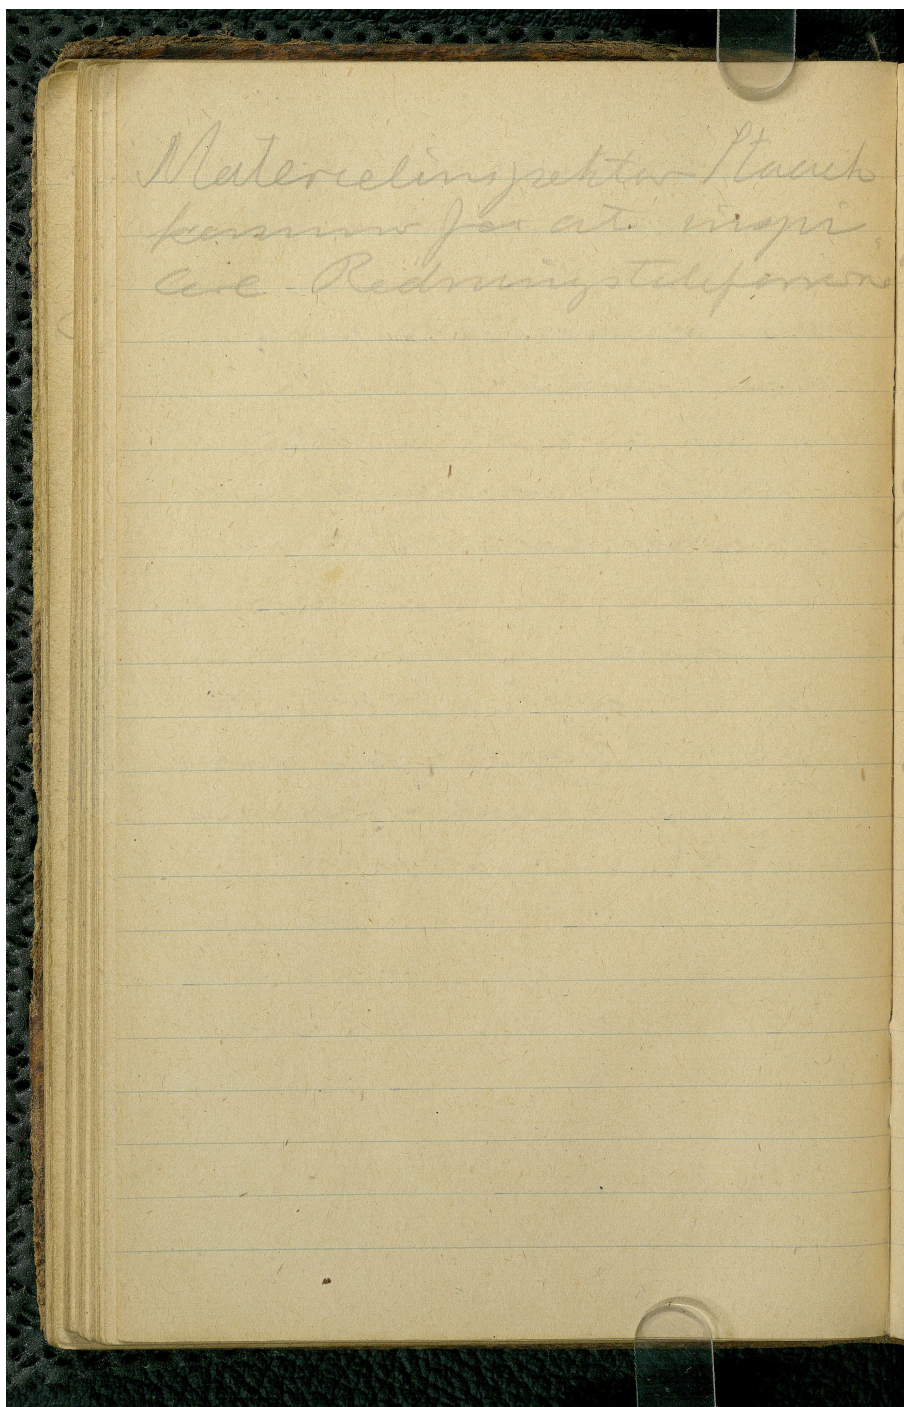 Materielinspektør
kommer for at inspi
cere Redningstelefonerne